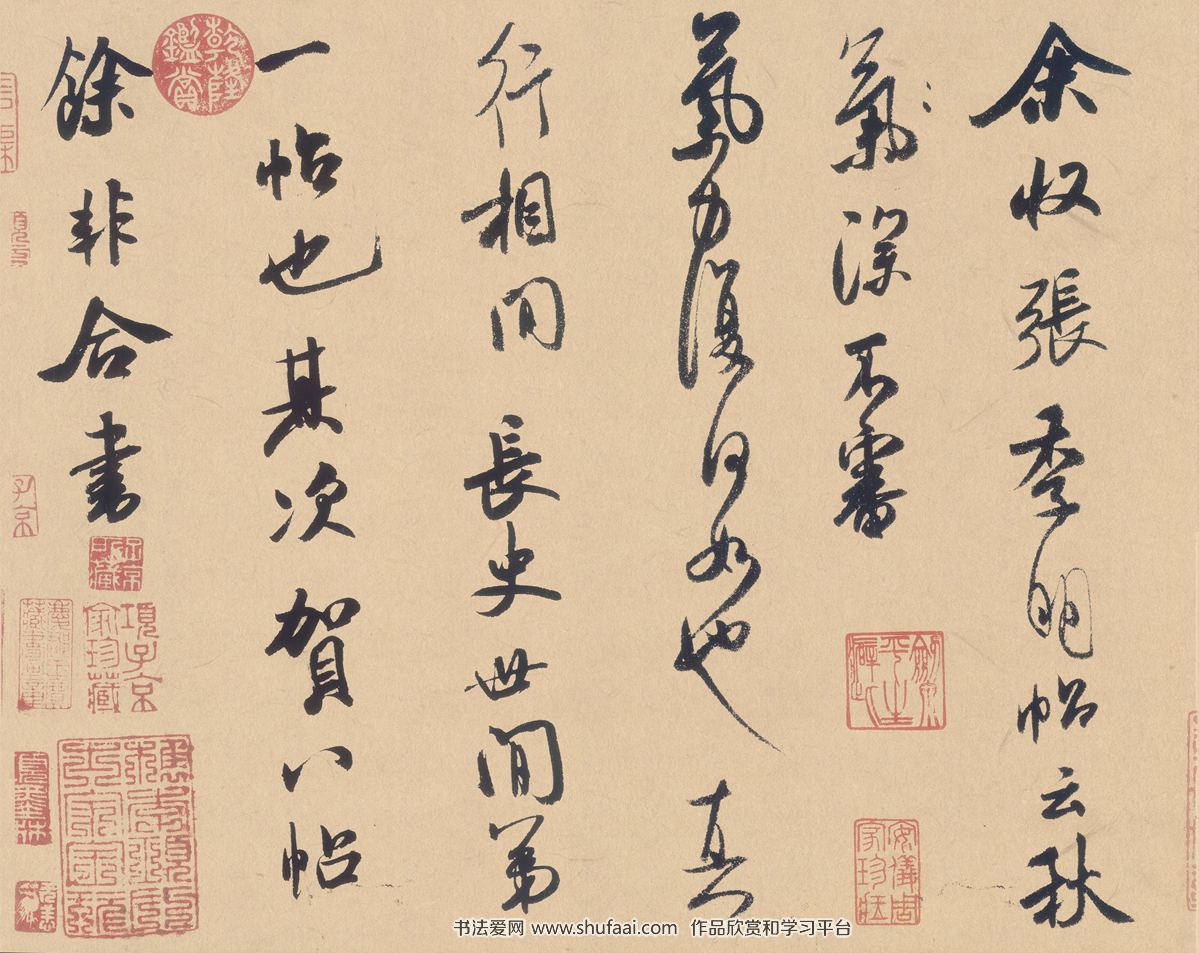 余收張季明帖云秋
氣深不審
氣力復何如也真
行相間長史世間第
一帖也其次賀八帖
餘非合書
乾隆鑑賞
項子京家珍藏
安儀周家珍藏
子京
书法爱网 www.shufaai.com 作品欣赏和学习平台